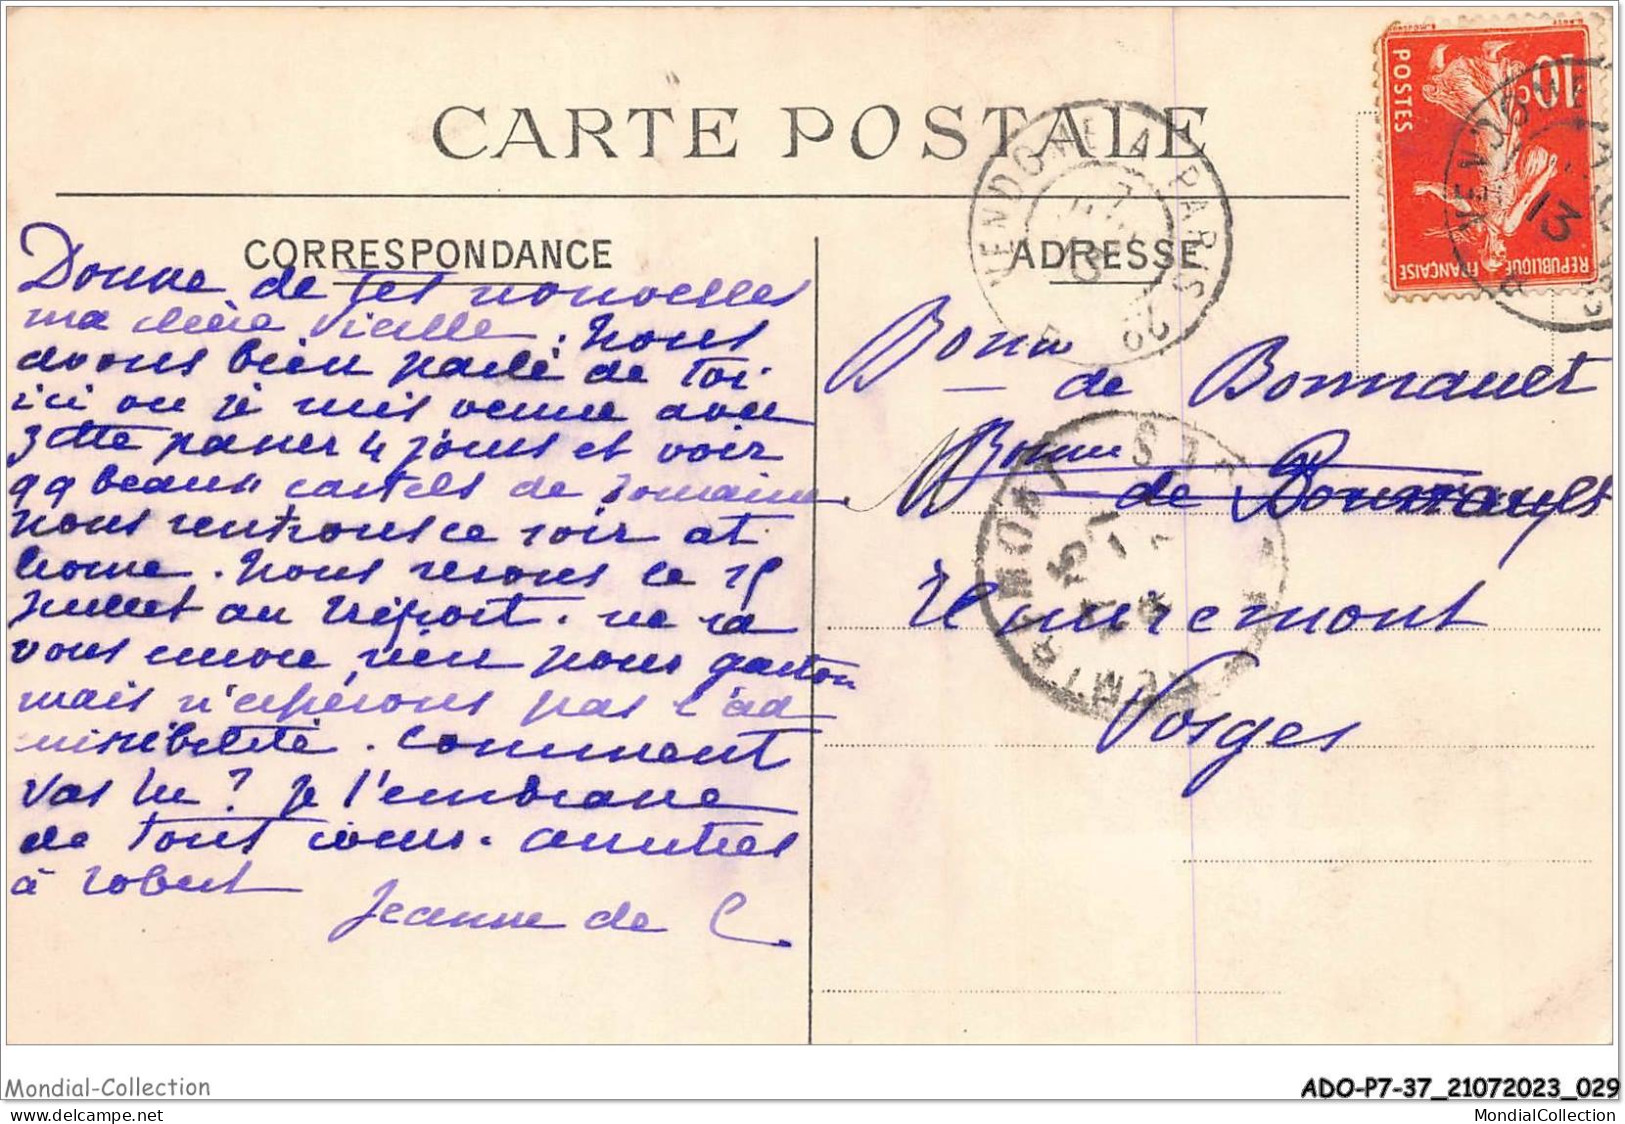 CARTE POSTALE
CORRESPONDANCE
Donne de tes nouvelles
ma chère vieille. Nous
avons bien parlé de toi
ici où je suis venue avec
passer 4 jours et voir
qq beaux castels de Touraine
nous rentrons ce soir at
home. Nous serons le 15
juillet au Tréport. ne sa
vons encore rien pour gaston
mais n'espérons pas l'ad
missibilité. Comment
vas tu ? Je t'embrasse
de tout cœur. amitiés
à Robert
Jeanne de C.
ADRESSE
VENDOME A PARIS
Bonne
de Bonnault
Bonne
de
Remiremont
Vosges
REMIREMONT
VOSGES
10c
POSTES
REPUBLIQUE FRANÇAISE
VENDOME
13
Mondial-Collection
ADO-P7-37_21072023_029
www.mondial-collection.com
MondialCollection